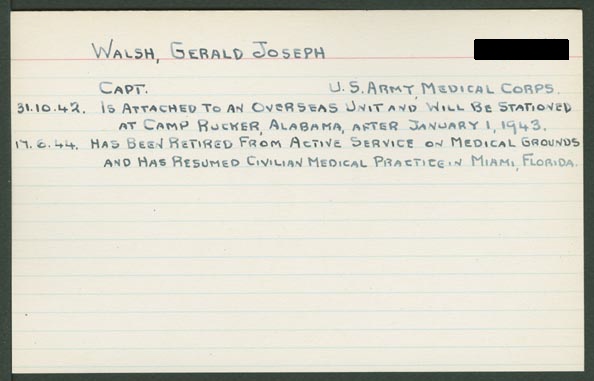 WALSH, GERALD JOSEPH
CAPT. U.S. ARMY, MEDICAL CORPS.
31.10.42. IS ATTACHED TO AN OVERSEAS UNIT AND WILL BE STATIONED
AT CAMP RUCKER, ALABAMA, AFTER JANUARY 1, 1943.
17.6.44. HAS BEEN RETIRED FROM ACTIVE SERVICE ON MEDICAL GROUNDS
AND HAS RESUMED CIVILIAN MEDICAL PRACTICE IN MIAMI, FLORIDA.